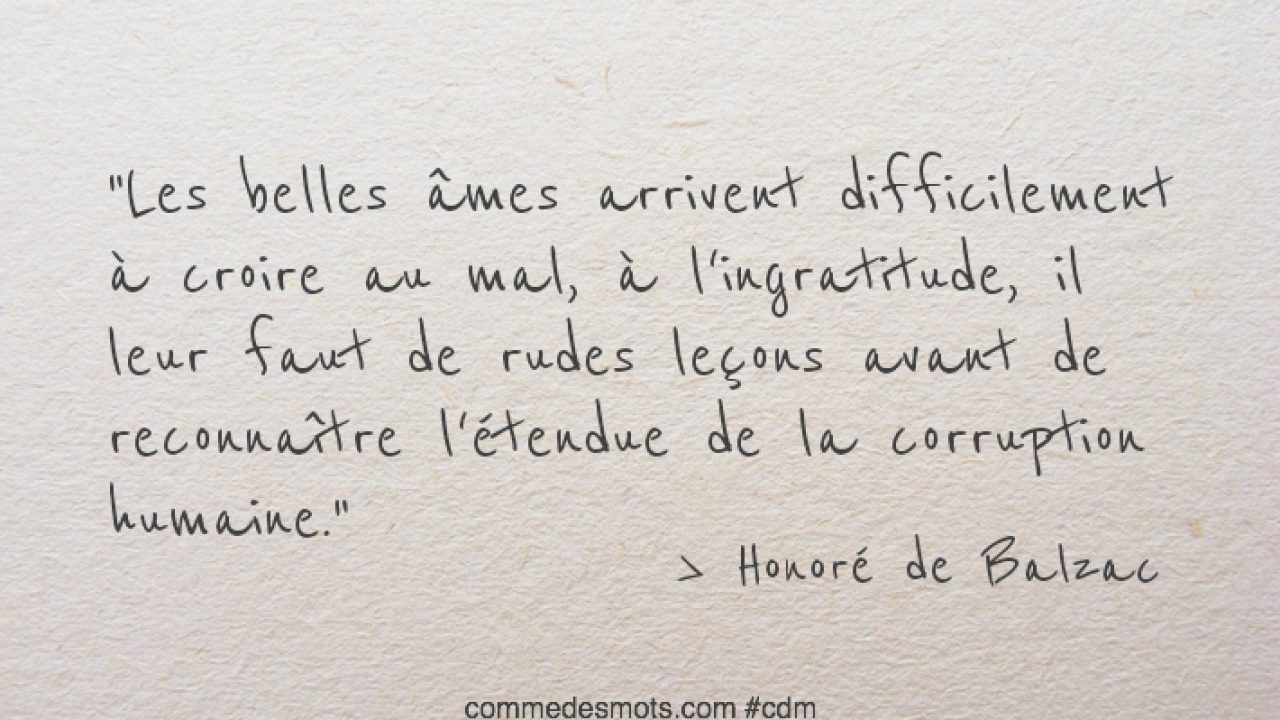 "Les belles âmes arrivent difficilement
à croire au mal, à l'ingratitude, il
leur faut de rudes leçons avant de
reconnaître l'étendue de la corruption
humaine."
> Honoré de Balzac
commedesmots.com #cdm